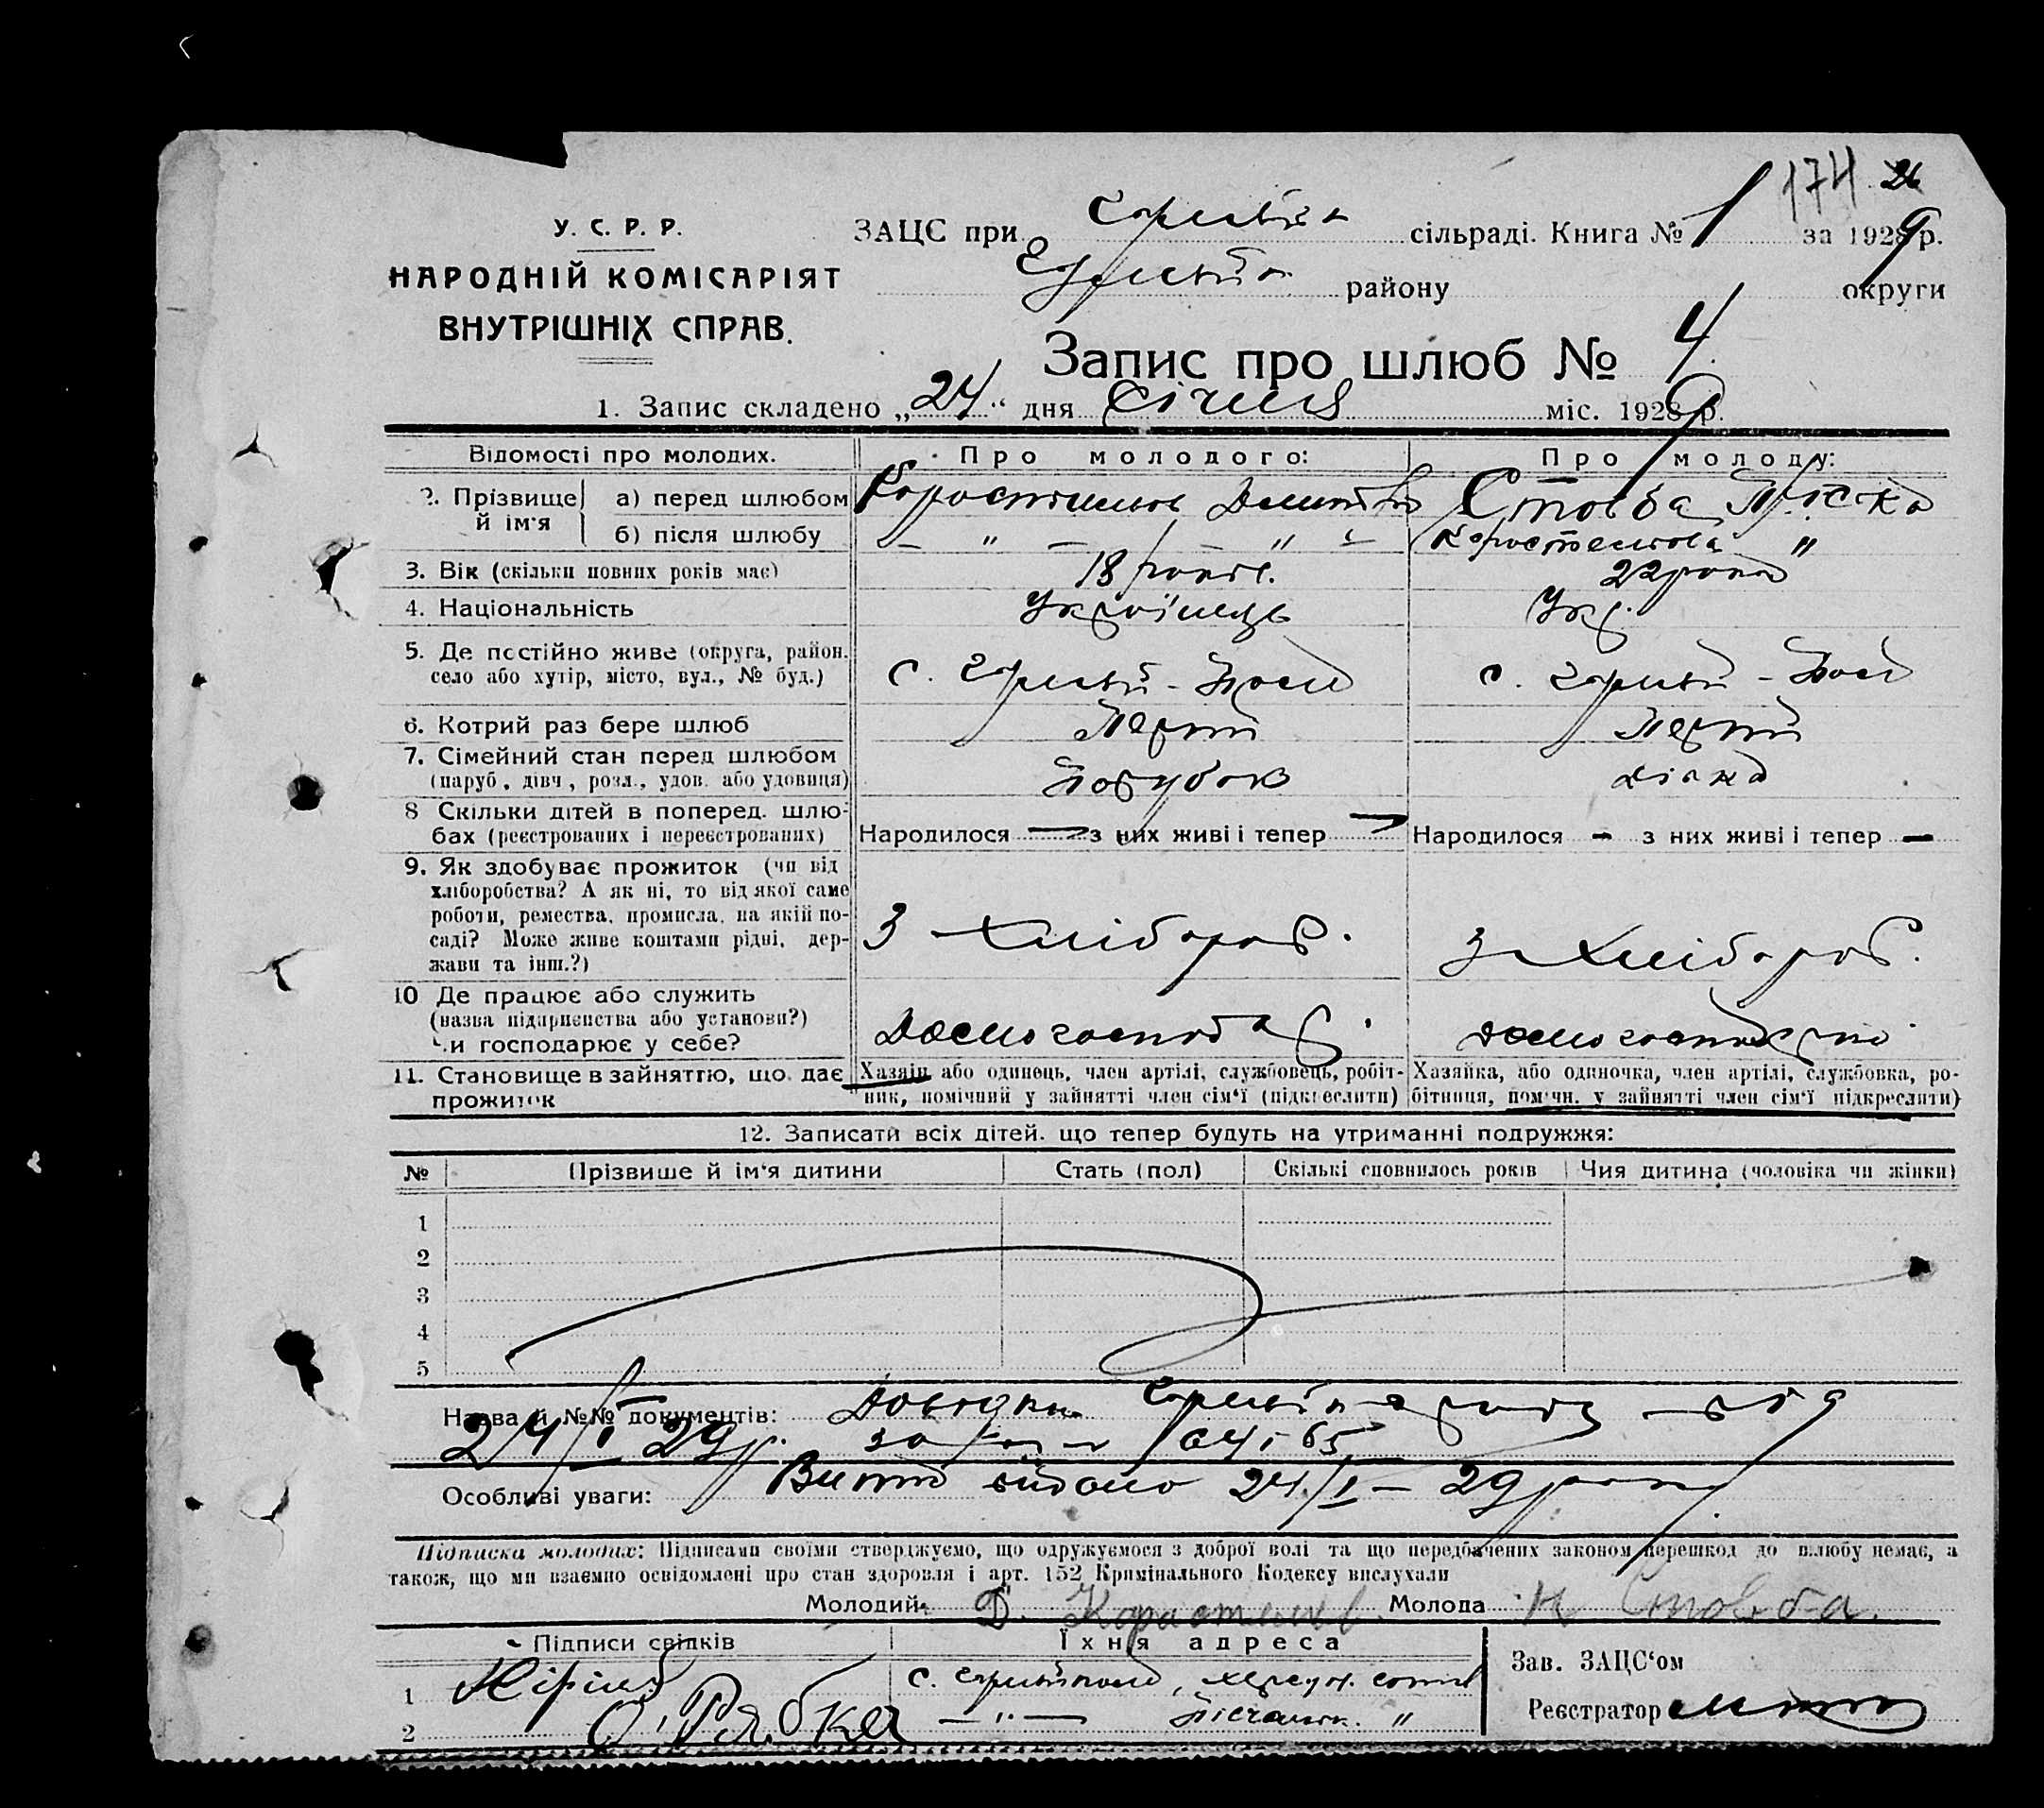 174 26
У. С. Р. Р.
НАРОДНІЙ КОМІСАРІЯТ
ВНУТРІШНІХ СПРАВ.
ЗАЦС при сільраді. Книга № 1 за 1929 р.
району округи
Запис про шлюб № 4
1. Запис складено „24“ дня січня міс. 1929 р.
Відомості про молодих. Про молодого: Про молоду:
2. Прізвище й ім'я а) перед шлюбом Стовба
б) після шлюбу — " — — " — "
3. Вік (скільки повних років має) 18 років. 22 роки
4. Національність Українець Укр.
5. Де постійно живе (округа, район, село або хутір, місто, вул., № буд.) с. с.
6. Котрий раз бере шлюб Перший Перший
7. Сімейний стан перед шлюбом (паруб., дівч., розл., удов. або удовиця) Парубок Дівка
8 Скільки дітей в поперед. шлюбах (реєстрованих і нереєстрованих) Народилося — з них живі і тепер — Народилося — з них живі і тепер —
9. Як здобуває прожиток (чи від хліборобства? А як ні, то від якої саме роботи, ремества, промисла, на якій посаді? Може живе коштами рідні, держави та інш.?) З хлібороб. З хлібороб.
10 Де працює або служить (назва підприємства або установи?) Чи господарює у себе? Домогосподар.
11. Становище в зайняттю, що дає прожиток Хазяїн або одинець, член артілі, службовець, робітник, помічний у зайнятті член сім'ї (підкреслити) Хазяйка, або одиночка, член артілі, службовка, робітниця, помічн. у зайнятті член сім'ї підкреслити)
12. Записати всіх дітей, що тепер будуть на утриманні подружжя:
№ Прізвише й ім'я дитини Стать (пол) Скількі сповнилось років Чия дитина (чоловіка чи жінки)
1
2
3
4
5
Назва й №№ документів: Довідки від
24/I 29 р. за 64 і 65
Особливі уваги: видано 24/I – 29 року
Підписка молодих: Підписами своїми стверджуємо, що одружуємося з доброї волі та що передбачених законом перешкод до шлюбу немає, а
також, що ми взаємно освідомлені про стан здоровля і арт. 152 Кримінального Кодексу вислухали
Молодий Д. Молода Н Стовба.
Підписи свідків Їхня адреса
Зав. ЗАЦС'ом
1 с.
2 О. Рябка — " — "
Реєстратор